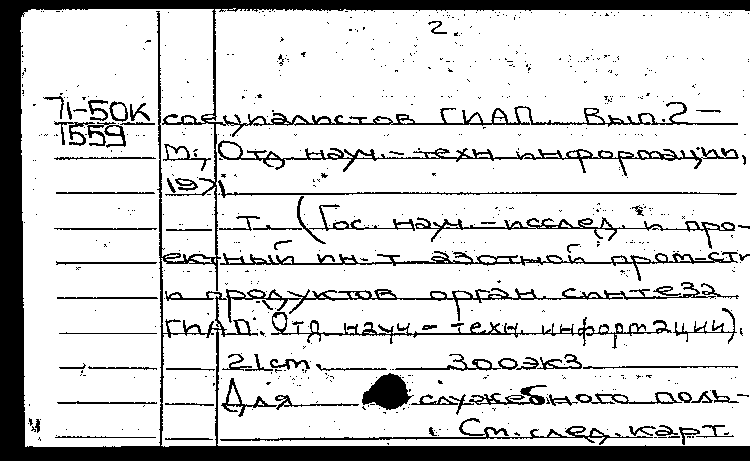 2.
71-50К специалистов ГИАП. Вып.2 —
1559
м., Отд науч.-техн информации,
1971.
т. (Гос. науч.-исслед. и про-
ектный ин-т азотной пром-сти
и продуктов орган. синтеза
ГИАП. Отд науч.- техн. информации).
21 ст. 300экз.
Для служебного поль-
Ст. след. карт.